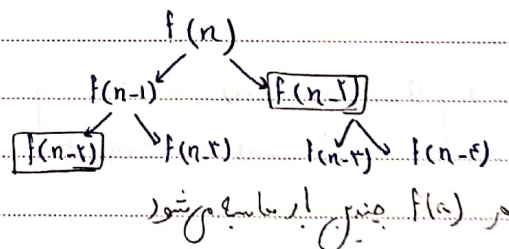 f(n)
f(n-1) f(n-۲)
f(n-۲) f(n-۳) f(n-۳) f(n-۴)
هر f(n) چندین بار محاسبه می‌شود